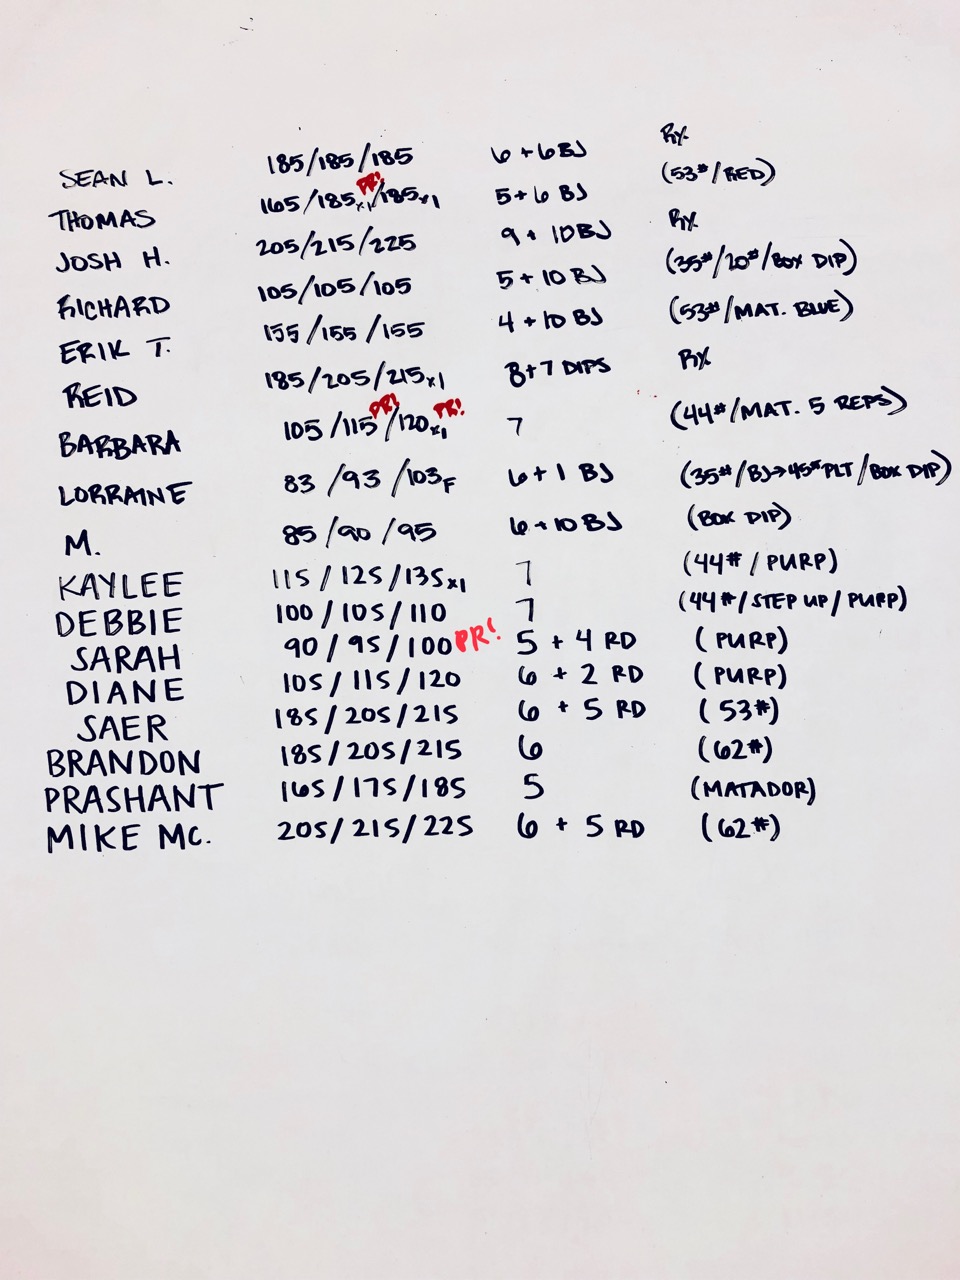 SEAN L. 185/185/185 6 + 6 BJ Rx
THOMAS 165/185x1 PR!/185x1 5 + 6 BJ (53#/RED)
JOSH H. 205/215/225 9 + 10 BJ Rx
RICHARD 105/105/105 5 + 10 BJ (35#/20#/BOX DIP)
ERIK T. 155/155/155 4 + 10 BJ (53#/MAT. BLUE)
REID 185/205/215x1 8+7 DIPS Rx
BARBARA 105/115 PR!/120x1 PR! 7 (44#/MAT. 5 REPS)
LORRAINE 83/93/103F 6 + 1 BJ (35#/BJ→45# PLT/BOX DIP)
M. 85/90/95 6 + 10 BJ (BOX DIP)
KAYLEE 115/125/135x1 7 (44#/PURP)
DEBBIE 100/105/110 7 (44#/STEP UP/PURP)
SARAH 90/95/100 PR! 5 + 4 RD (PURP)
DIANE 105/115/120 6 + 2 RD (PURP)
SAER 185/205/215 6 + 5 RD (53#)
BRANDON 185/205/215 6 (62#)
PRASHANT 165/175/185 5 (MATADOR)
MIKE MC. 205/215/225 6 + 5 RD (62#)